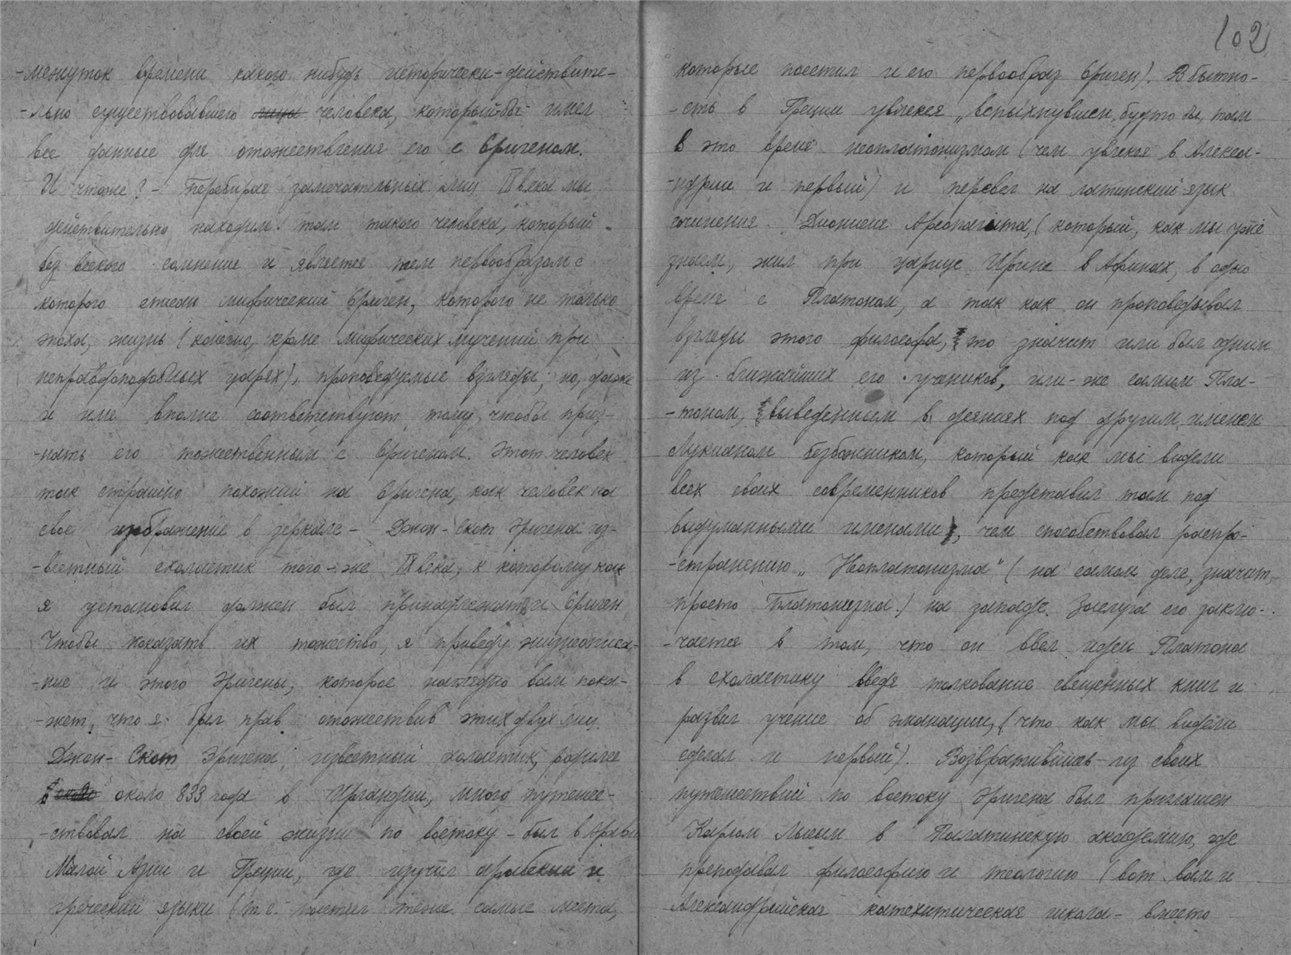 -межуток времени какого нибудь исторически-действите-
-льно существовавшего человека, который бы имел
все данные для отожествления его с Оригеном.
И что же? - Перебирая замечательных лиц IX века мы
действительно находим там такого человека, который
без всякого сомнения и является тем первообразом с
которого списан мифический Ориген, которого не только
эпоха, жизнь (конечно, кроме мифических мучений при
неправдоподобных царях), проповедуемые взгляды, но, даже
и имя вполне соответствуют тому, чтобы приз-
-нать его тожественным с Оригеном. Этот человек
так страшно похожий на Оригена, как человек на
свое изображение в зеркале - Джон-Скот Эригена из-
-вестный схоластик того-же IX века, к которому как
я установил должен был принадлежать и Ориген
Чтобы показать их тожество, я приведу жизнеописа-
-ние и этого Эригены, которое наглядно вам пока-
-жет, что я был прав отожествив этих двух лиц.
Джон-Скот Эригена известный схоластик, родился
около 833 года в Ирландии, много путеше-
-ствовал на своей жизни по востоку - был в Аравии
Малой Азии и Греции, где изучил арабский и
греческий языки (т.е. посетил те же самые места,
102
которые посетил и его первообраз Ориген). В бытно-
-сть в Греции увлекся „вспыхнувшим, будто бы, там
в это время неоплатонизмом (чем увлекся в Алекса-
-ндрии и первый) и перевел на латинский язык
сочинения Дионисия Ареопагита, (который, как мы уже
знаем, жил при царице Ирине в Афинах, в одно
время с Платоном, а так как он проповедывал
взгляды этого философа, то значит или был одним
из ближайших его учеников, или-же самим Пла-
-тоном, выведенным в деяниях под другим именем
Лукианом безбожником, который как мы видели
всех своих современников представил там под
выдуманными именами), чем способствовал распро-
-странению „Неоплатонизма" (на самом деле, значит,
просто Платонизма) на западе. Заслуга его заклю-
-чается в том, что он ввел идеи Платона
в схоластику введя толкование священных книг и
развил учение об эманации, (что как мы видели
сделал и первый). Возвратившись из своих
путешествий по востоку Эригена был приглашен
Карлом Лысым в Палатинскую академию, где
преподавал философию и теологию (вот вам и
Александрийская катехитическая школа - вместо